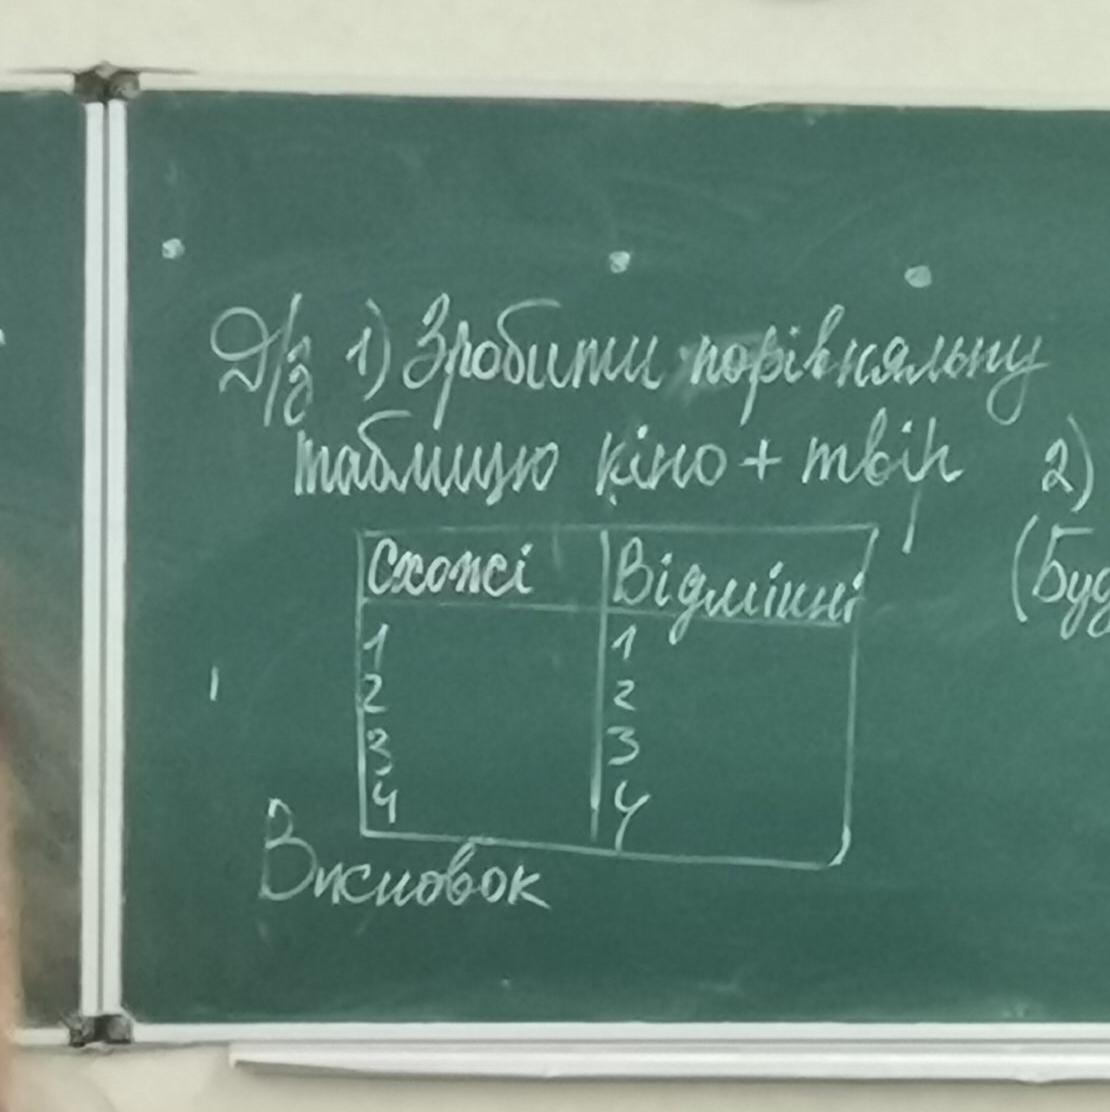 Д/з 1) Зробити порівняльну
таблицю кіно + твір
2)
(Буд
Схожі Відмінні
1 1
2 2
3 3
4 4
Висновок